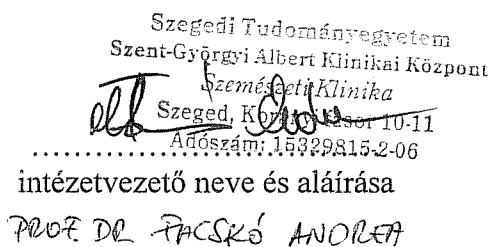 Szegedi Tudományegyetem
Szent-Györgyi Albert Klinikai Központ
Szemészeti Klinika
Szeged, 10-11
Adószám: 15329815-2-06
intézetvezető neve és aláírása
PROF. DR. FACSKÓ ANDREA